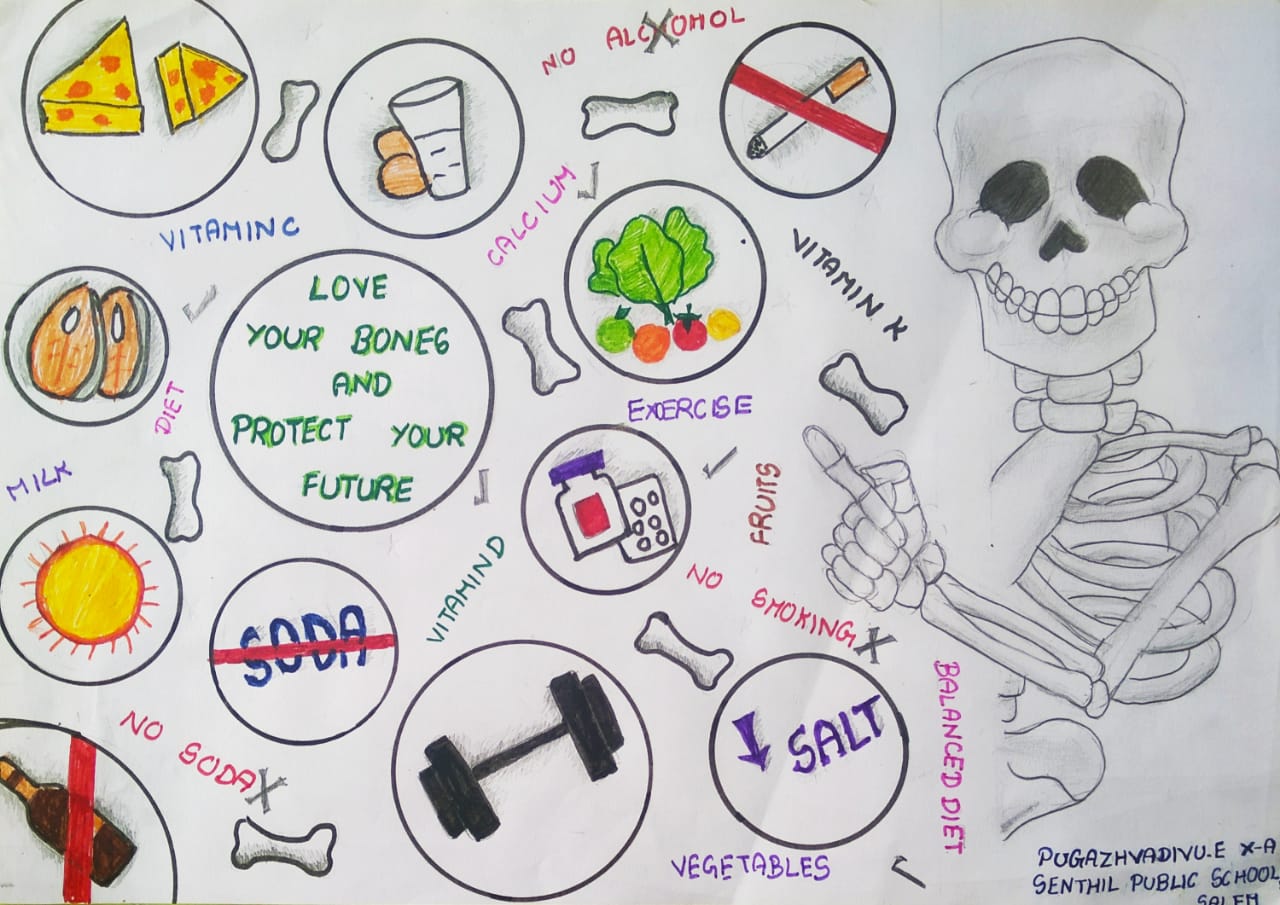 NO ALCOHOL
VITAMIN C
CALCIUM
VITAMIN K
LOVE
YOUR BONES
AND
PROTECT YOUR
FUTURE
DIET
EXERCISE
MILK
FRUITS
VITAMIN D
NO SMOKING
SODA
NO SODA
SALT
BALANCED DIET
VEGETABLES
PUGAZHVADIVU.E X-A
SENTHIL PUBLIC SCHOOL,
SALEM